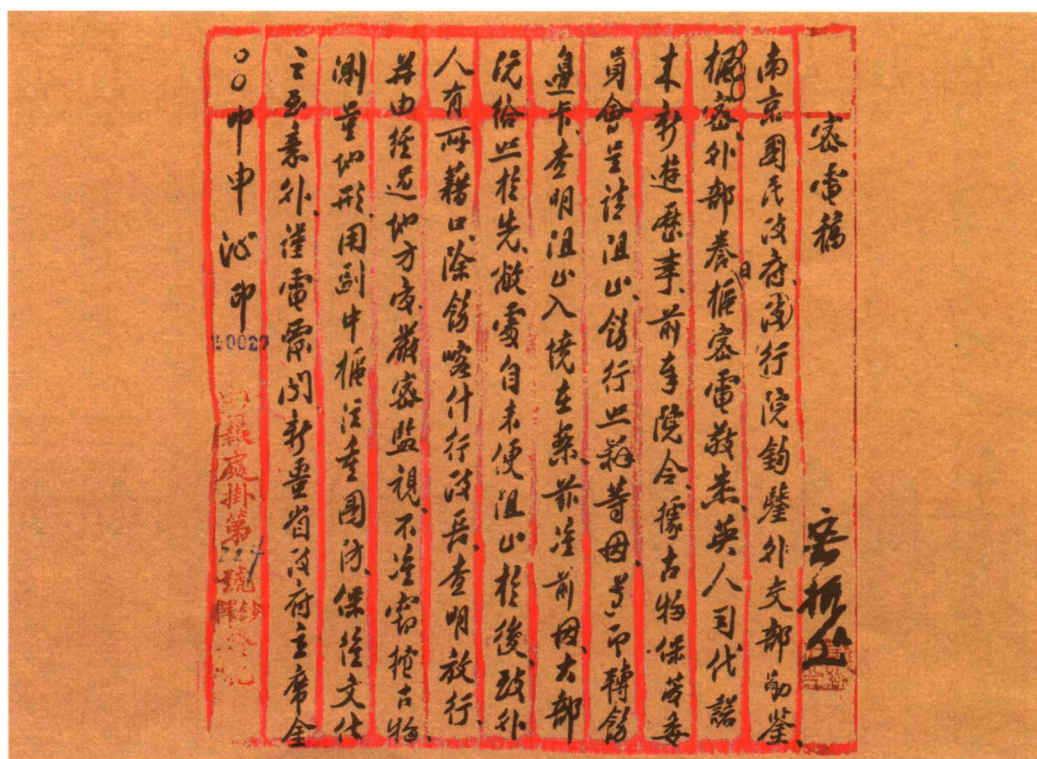 密電稿
南京國民政府行政院鈞鑒外交部勛鑒
極密外部養日極密電敬悉英人司代諾
來新遊歷事前奉院令據古物保管委
員會呈請阻止飭行照辦等因遵即轉飭
邊卡查明阻止入境在案茲准前因大部
既給照於先敝處自未便阻止於後致外
人有所藉口除飭喀什行政長查明放行
并由經過地方官嚴密監視不准窃挖古物
測量地形用副中樞注重國防保管文化
之至意外謹電察閱新疆省政府主席金
〇〇叩申沁印
10027
電報處掛第號